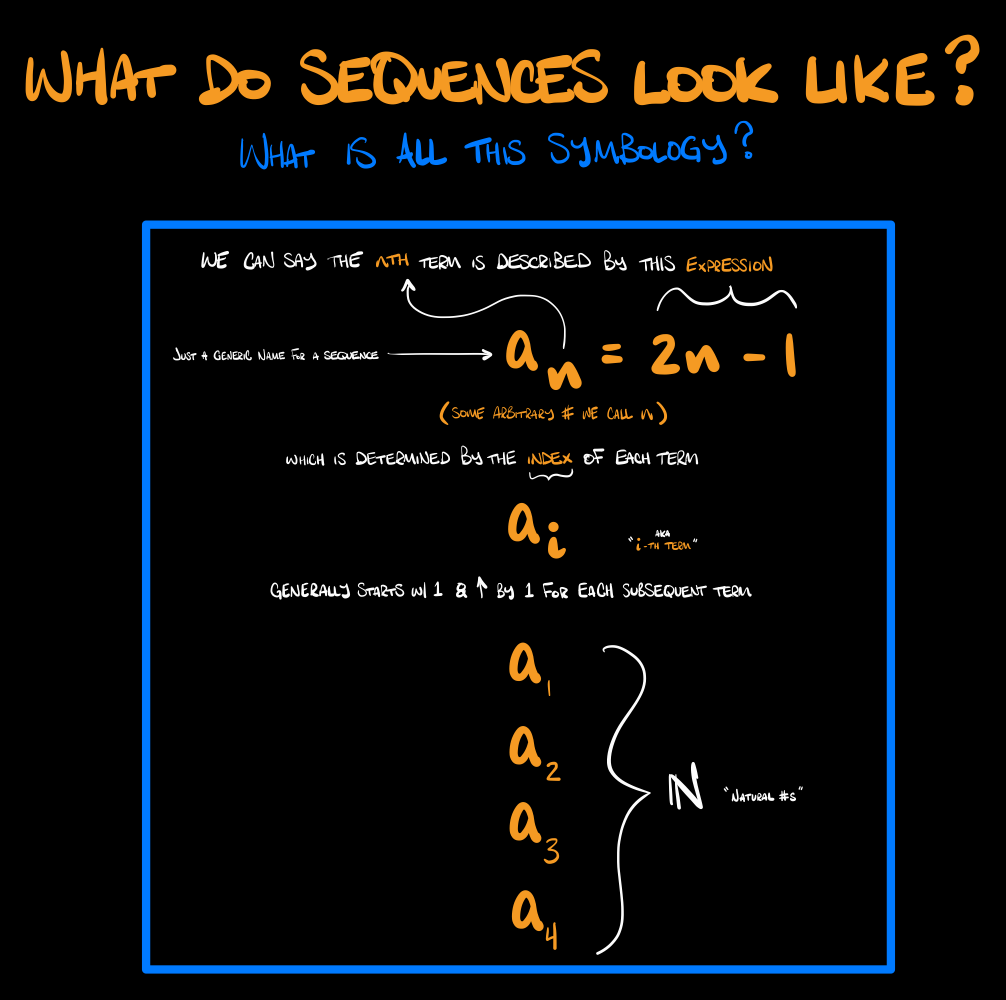 WHAT DO SEQUENCES LOOK LIKE?
WHAT IS ALL THIS SYMBOLOGY?
WE CAN SAY THE nTH TERM IS DESCRIBED BY THIS EXPRESSION
JUST A GENERIC NAME FOR A SEQUENCE → aₙ = 2n - 1
(SOME ARBITRARY # WE CALL n)
WHICH IS DETERMINED BY THE INDEX OF EACH TERM
aᵢ
AKA
"i-TH TERM"
GENERALLY STARTS W/ 1 & ↑ BY 1 FOR EACH SUBSEQUENT TERM
a₁
a₂
ℕ "NATURAL #S"
a₃
a₄